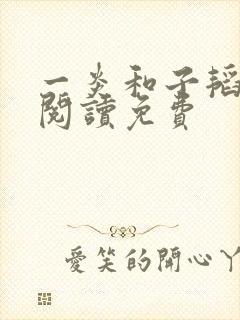 一炎和子韬
閱讀免費
愛笑的開心丫